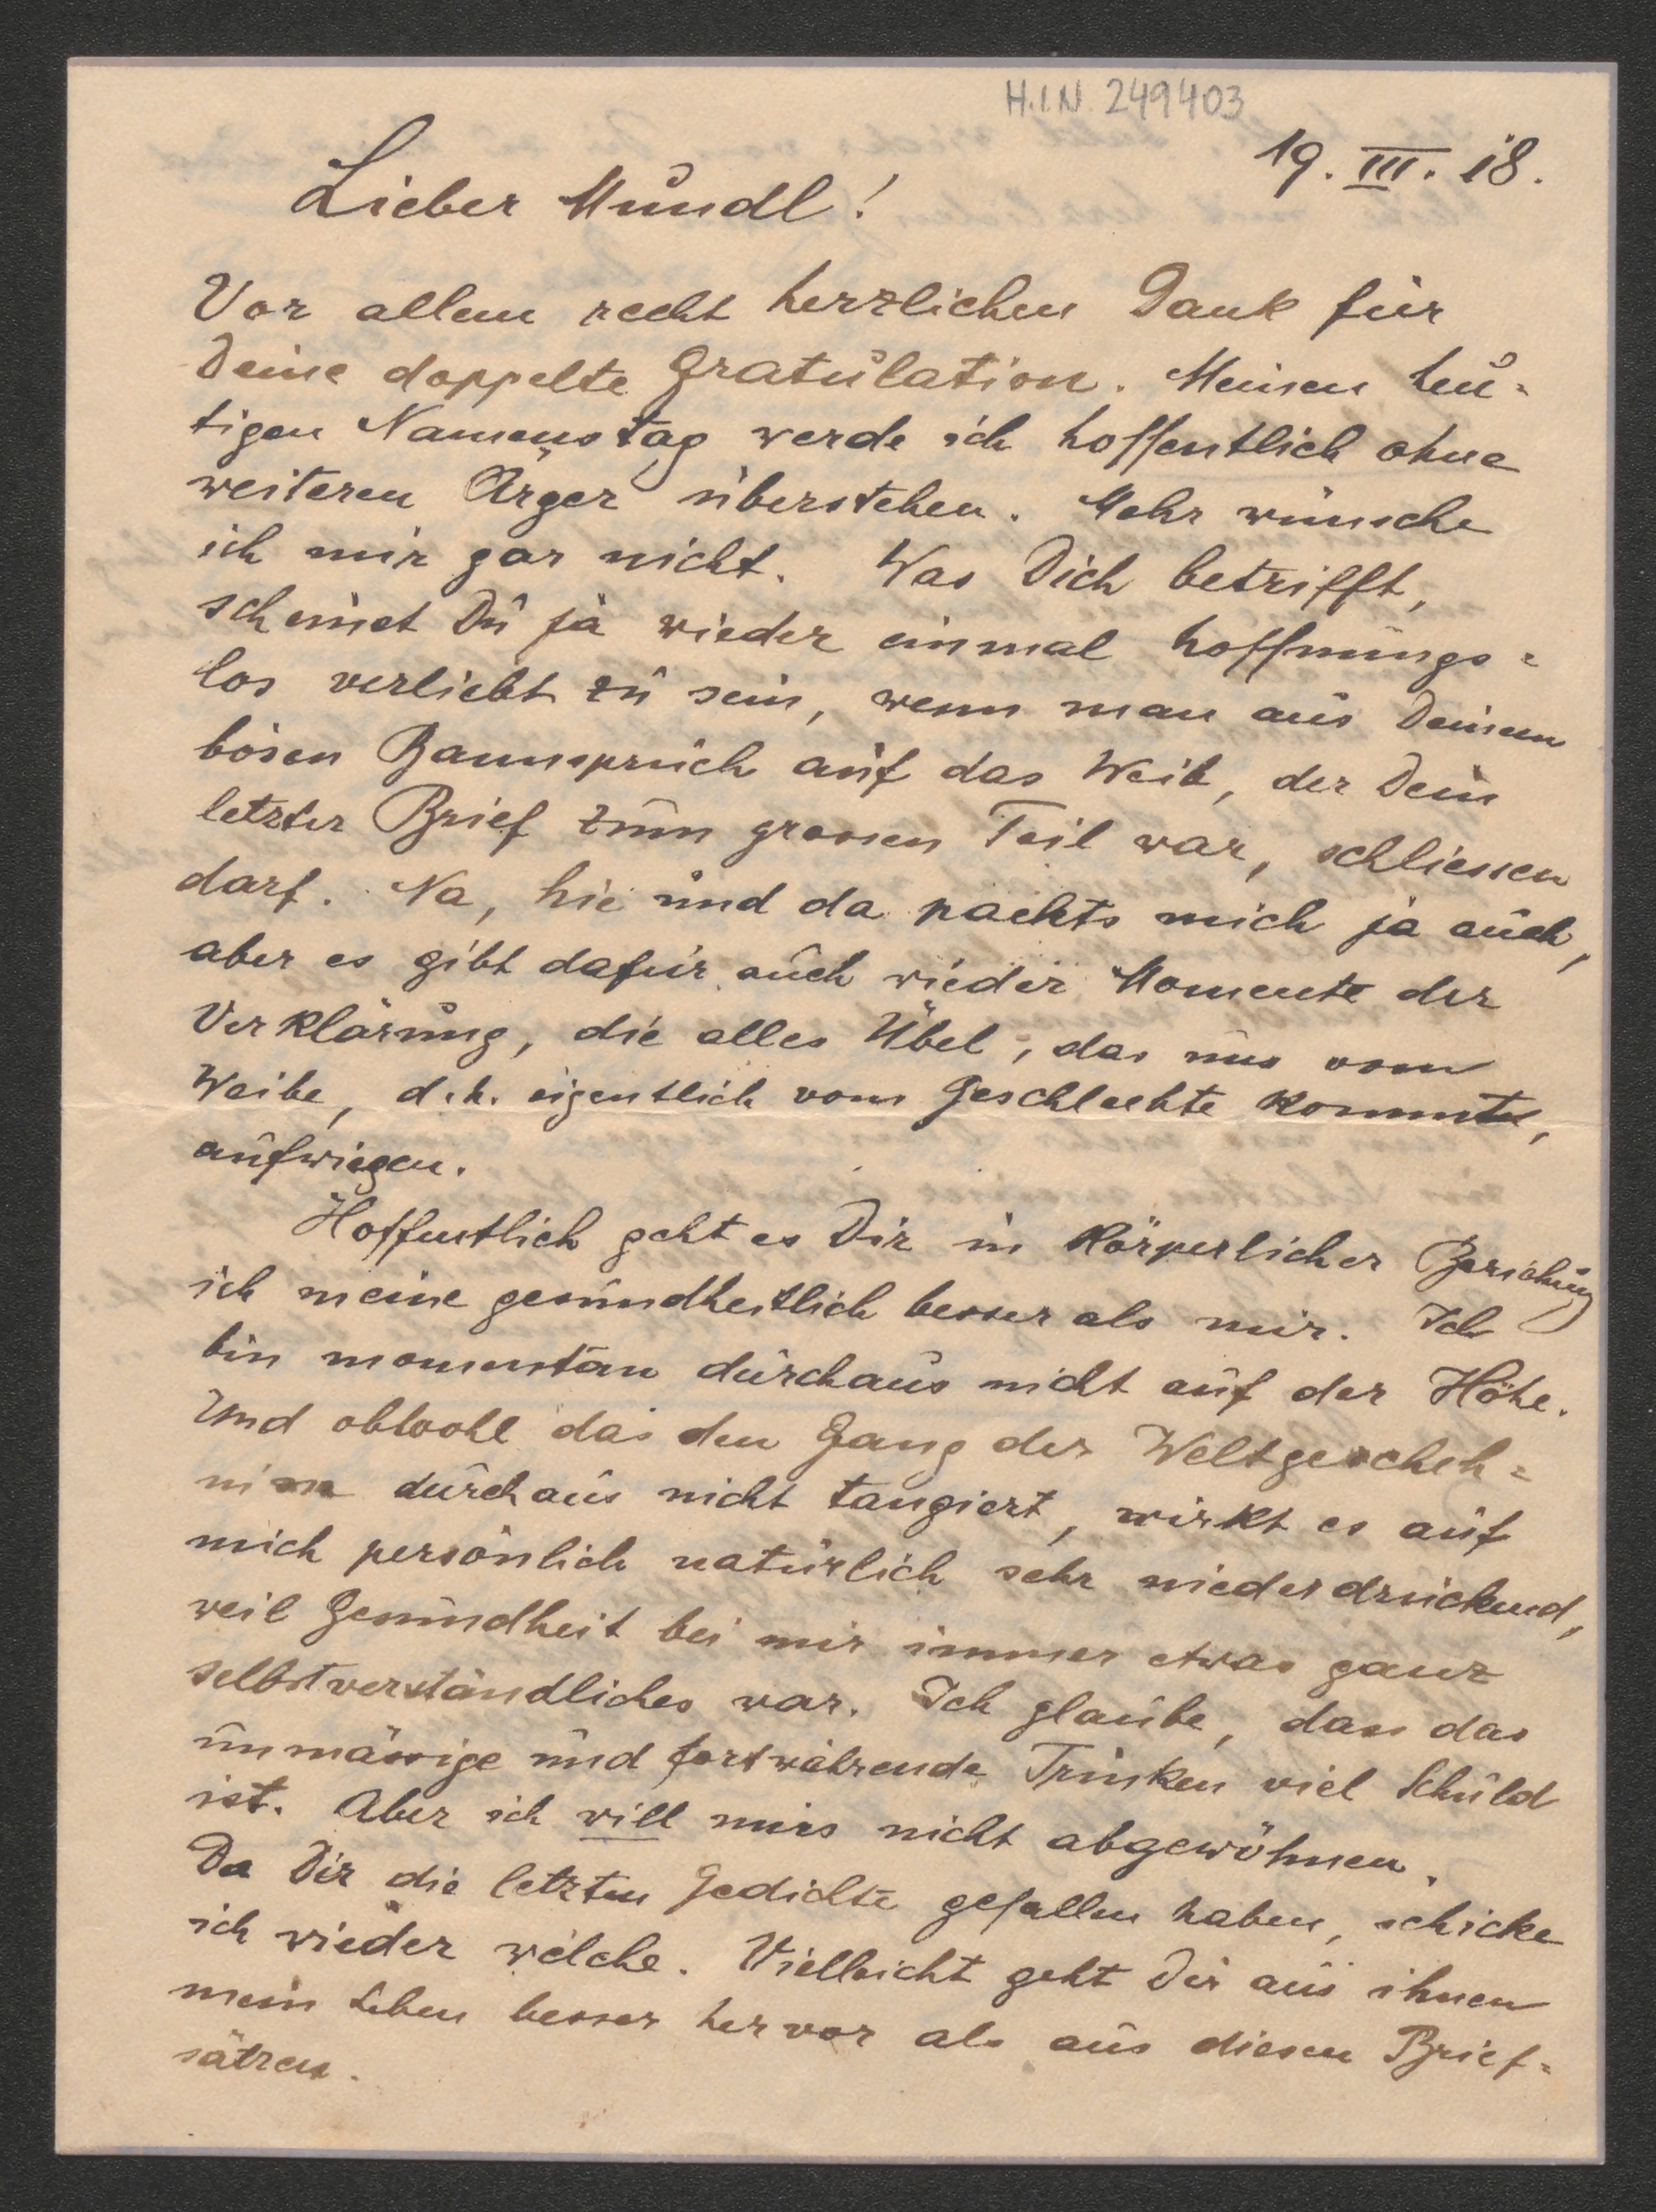 H.I.N. 249403
19. III. 18.
Lieber Mundl!
Vor allem recht herzlichen Dank für
Deine doppelte Gratulation. Meinen heu=
tigen Namenstag werde ich hoffentlich ohne
weiteren Ärger überstehen. Mehr wünsche
ich mir gar nicht. Was Dich betrifft,
scheinst Du ja wieder einmal hoffnungs=
los verliebt zu sein, wenn man aus Deinem
bösen Bannspruch auf das Weib, der Dein
letzter Brief zum grossen Teil war, schliessen
darf. Na, hie und da packts mich ja auch,
aber es gibt dafür auch wieder Momente der
Verklärung, die alles Übel, das uns vom
Weibe, d.h. eigentlich vom Geschlechte kommt,
aufwiegen.
Hoffentlich geht es Dir in körperlicher Beziehung
ich meine gesundheitlich besser als mir. Ich
bin momentan durchaus nicht auf der Höhe.
Und obwohl das den Gang der Weltgescheh=
nisse durchaus nicht tangiert, wirkt es auf
mich persönlich natürlich sehr niederdrückend,
weil Gesundheit bei mir immer etwas ganz
selbstverständliches war. Ich glaube, dass das
unmässige und fortwährende Trinken viel Schuld
ist. Aber ich will mirs nicht abgewöhnen.
Da Dir die letzten Gedichte gefallen haben, schicke
ich wieder welche. Vielleicht geht Dir aus ihnen
mein Leben besser hervor als aus diesen Brief=
sätzen.